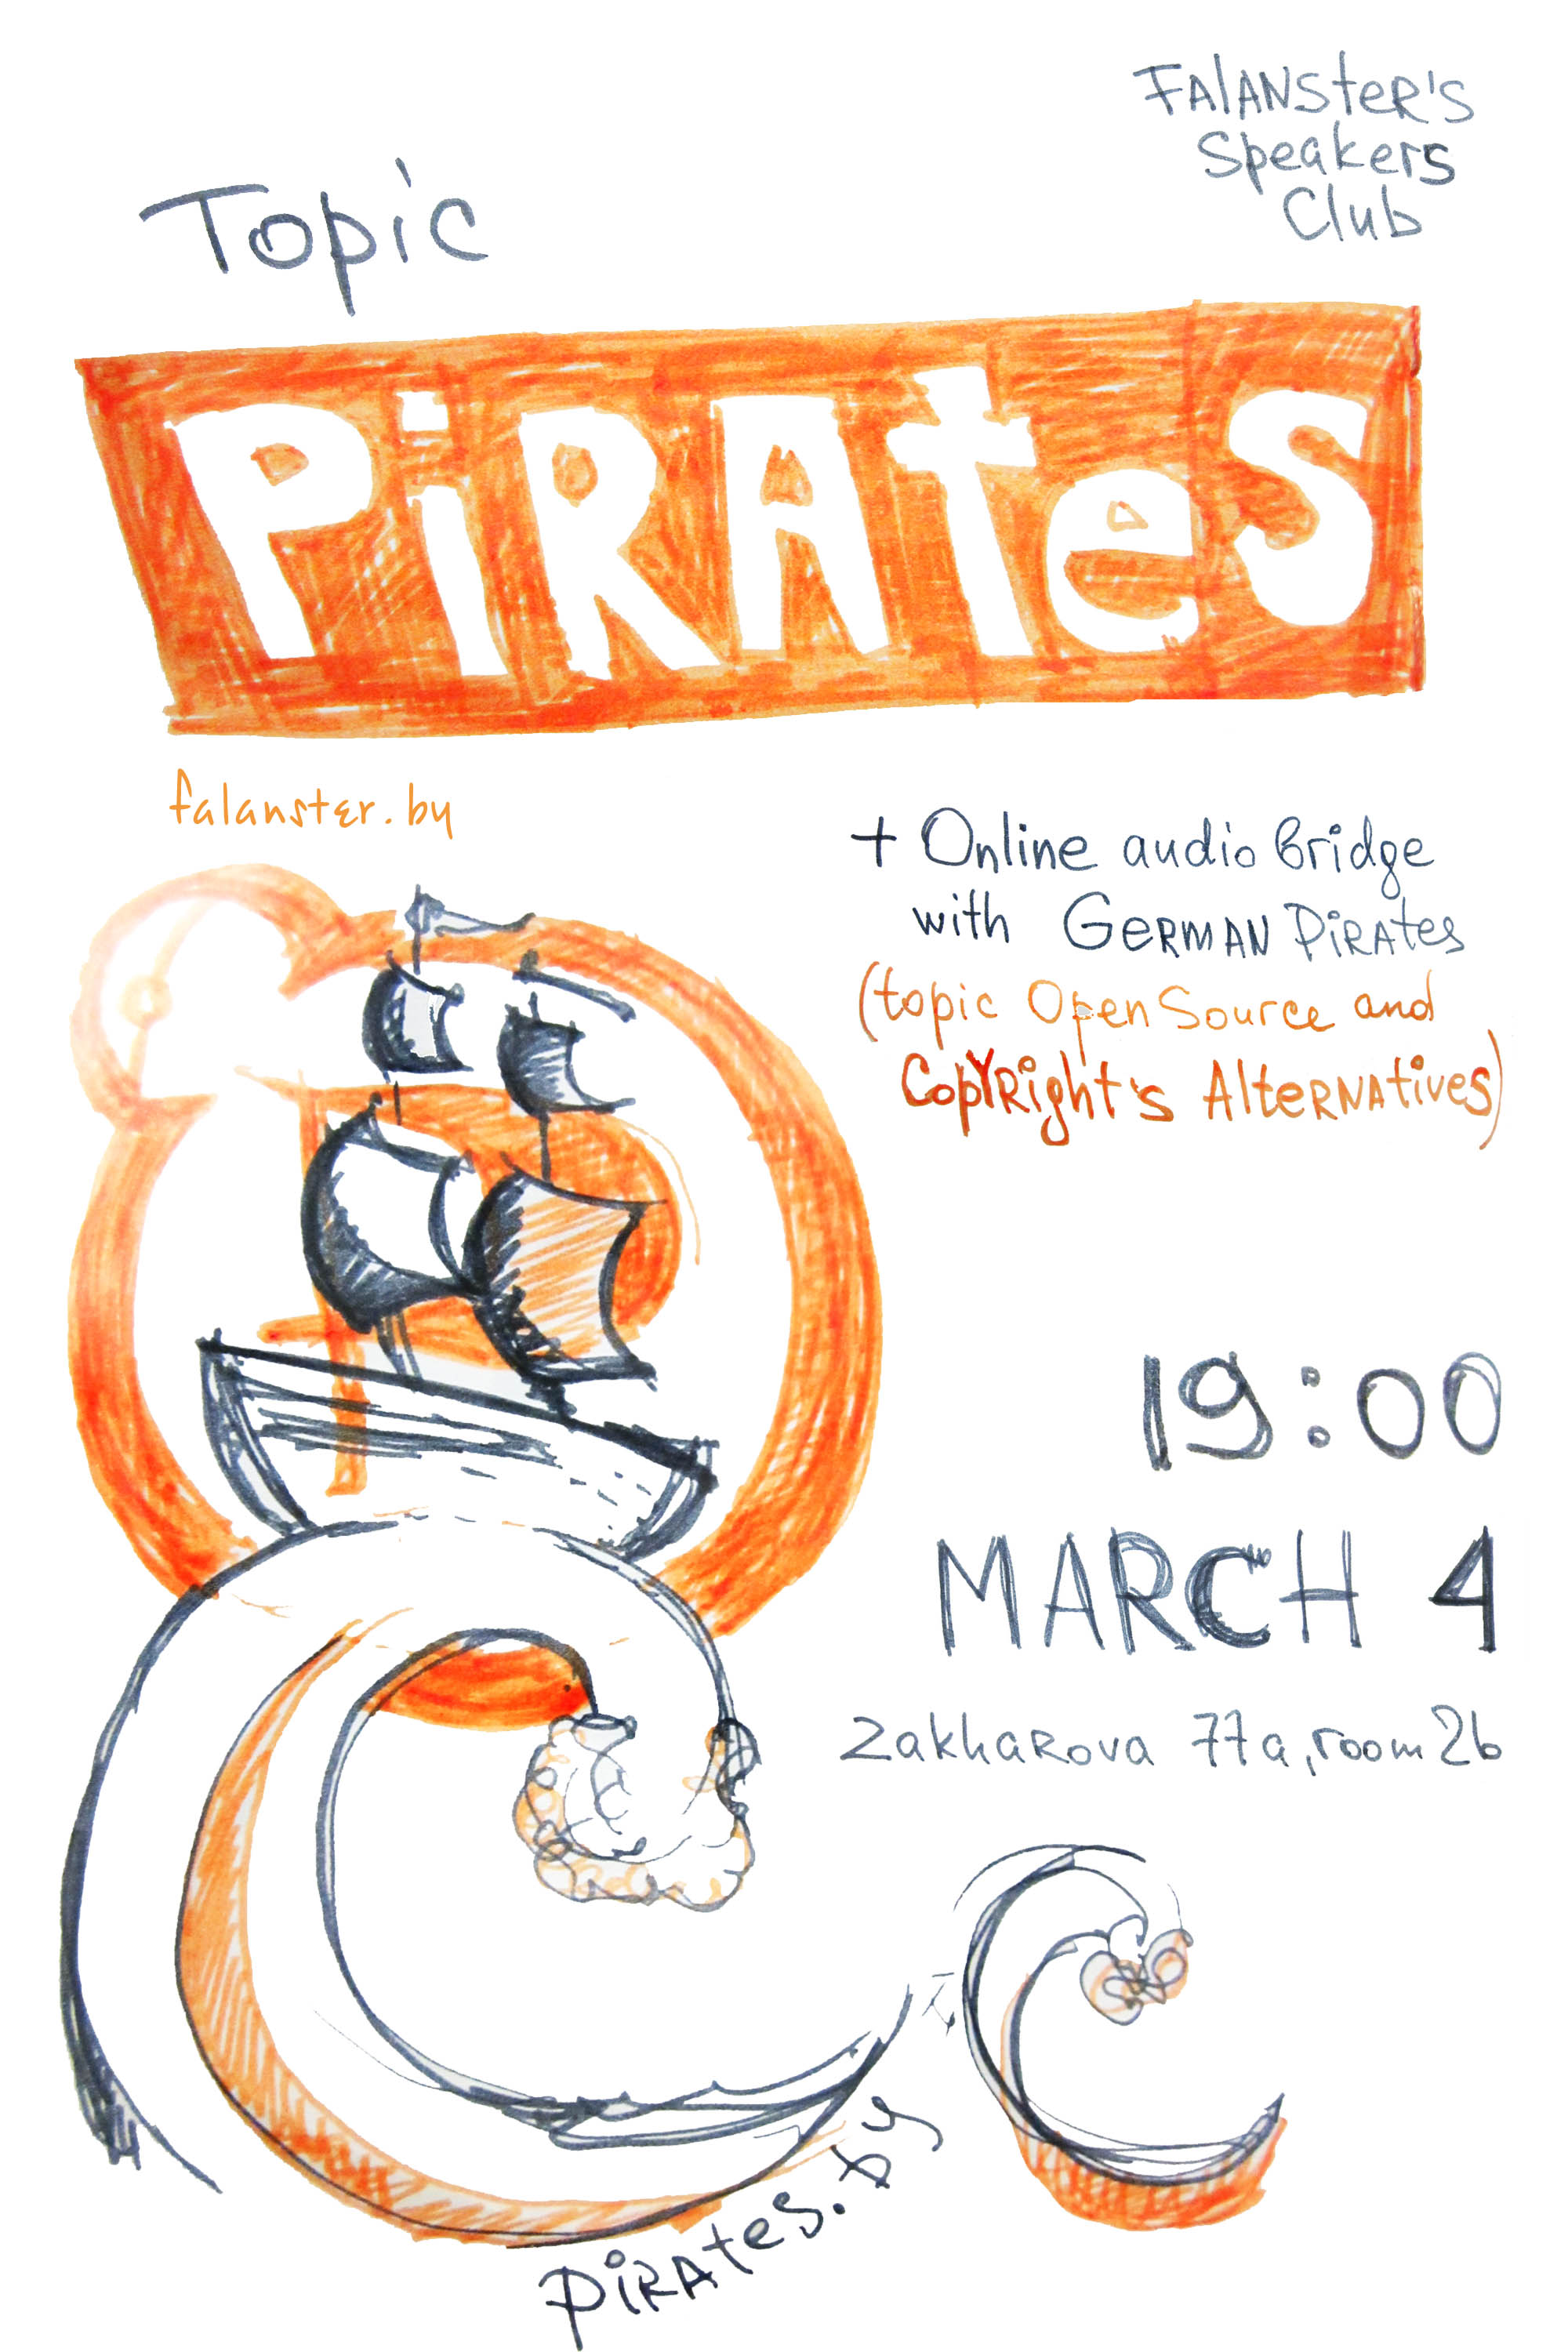 FAlANSteR's
Speakers
Club
Topic
PiRAteS
falanster.by
+ Online audio bridge
with GERMAN PiRAtes
(topic Open Source and
CopYRight's AlteRNAtives)
19:00
MARCH 4
Zakharova 77a, room 2b
piRAtes.by